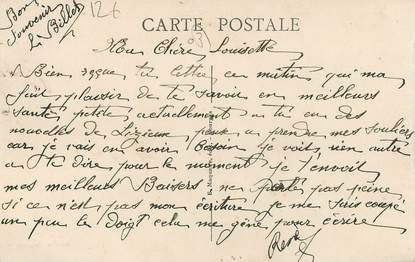 Bon
Souvenir
126
CARTE POSTALE
Ma Chère Louisette
Bien reçue ta lettre ce matin qui ma
fait plaisir de te savoir en meilleurs
santé, actuellement a tu eu des
nouvelles de pour a prendre mes souliers
car je vais en avoir besoin je voit rien autre
a te dire pour le moment je t'envoit
mes meilleurs Baisers ne portes pas peine
si ce n'est pas mon écriture je me suis coupé
un peu le doigt celui me gêne pour écrire